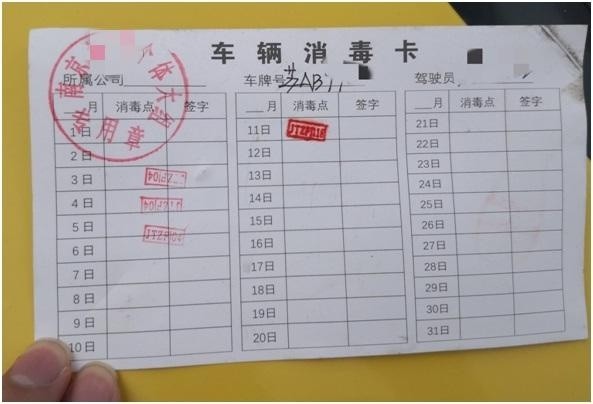 车辆消毒卡
所属公司 车牌号 苏AB 驾驶员
南京 体大
专用章
月 消毒点 签字 月 消毒点 签字 月 消毒点 签字
1日 11日 JTZP 21日
2日 12日 22日
3日 TZP104 13日 23日
4日 JTZP104 14日 24日
5日 15日 25日
6日 JTZP104 16日 26日
7日 17日 27日
8日 18日 28日
9日 19日 29日
10日 20日 30日
31日